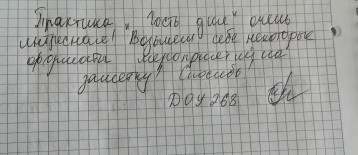 Практика „Гость дня" очень
интересная! Возьмем себе некоторые
формы мероприятий на
заметку! Спасибо
ДОУ 268